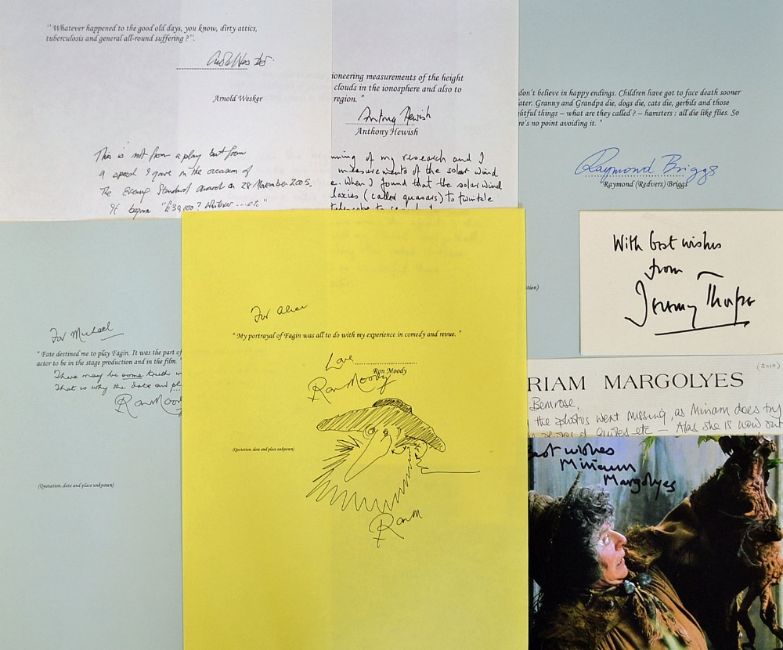 " Whatever happened to the good old days, you know, dirty attics,
tuberculosis and general all-round suffering ?".
Arnold Wesker
This is not from a play but from
a speech I gave in the
The Evening Standard award on 28 November 2005.
It begins "£30,100? Whatever ... etc"
ioneering measurements of the height
clouds in the ionosphere and also to
region. "
Antony Hewish
Anthony Hewish
ning of my research and I
measurements of the solar wind
e. When I found that the solar wind
laxies (called quasars) to twinkle
don't believe in happy endings. Children have got to face death sooner
ater. Granny and Grandpa die, dogs die, cats die, gerbils and those
htful things – what are they called? – hamsters ; all die like flies. So
re's no point avoiding it. '
Raymond Briggs
Raymond (Redvers) Briggs
With best wishes
from
Jeremy Thorpe
For Michael
" Fate destined me to play Fagin. It was the part of
actor to be in the stage production and in the film.
There may be some truth
That is why the
Ron Moody
(Quotation, date and place unknown)
For Alan
" My portrayal of Fagin was all to do with my experience in comedy and revue. "
Love
Ron Moody
Ron Moody
(Quotation, date and place unknown)
Ron M
RIAM MARGOLYES
Bemrose,
the photos went missing, as Miriam does try
Quotes etc – Alas she is now out
est wishes
Miriam
Margolyes